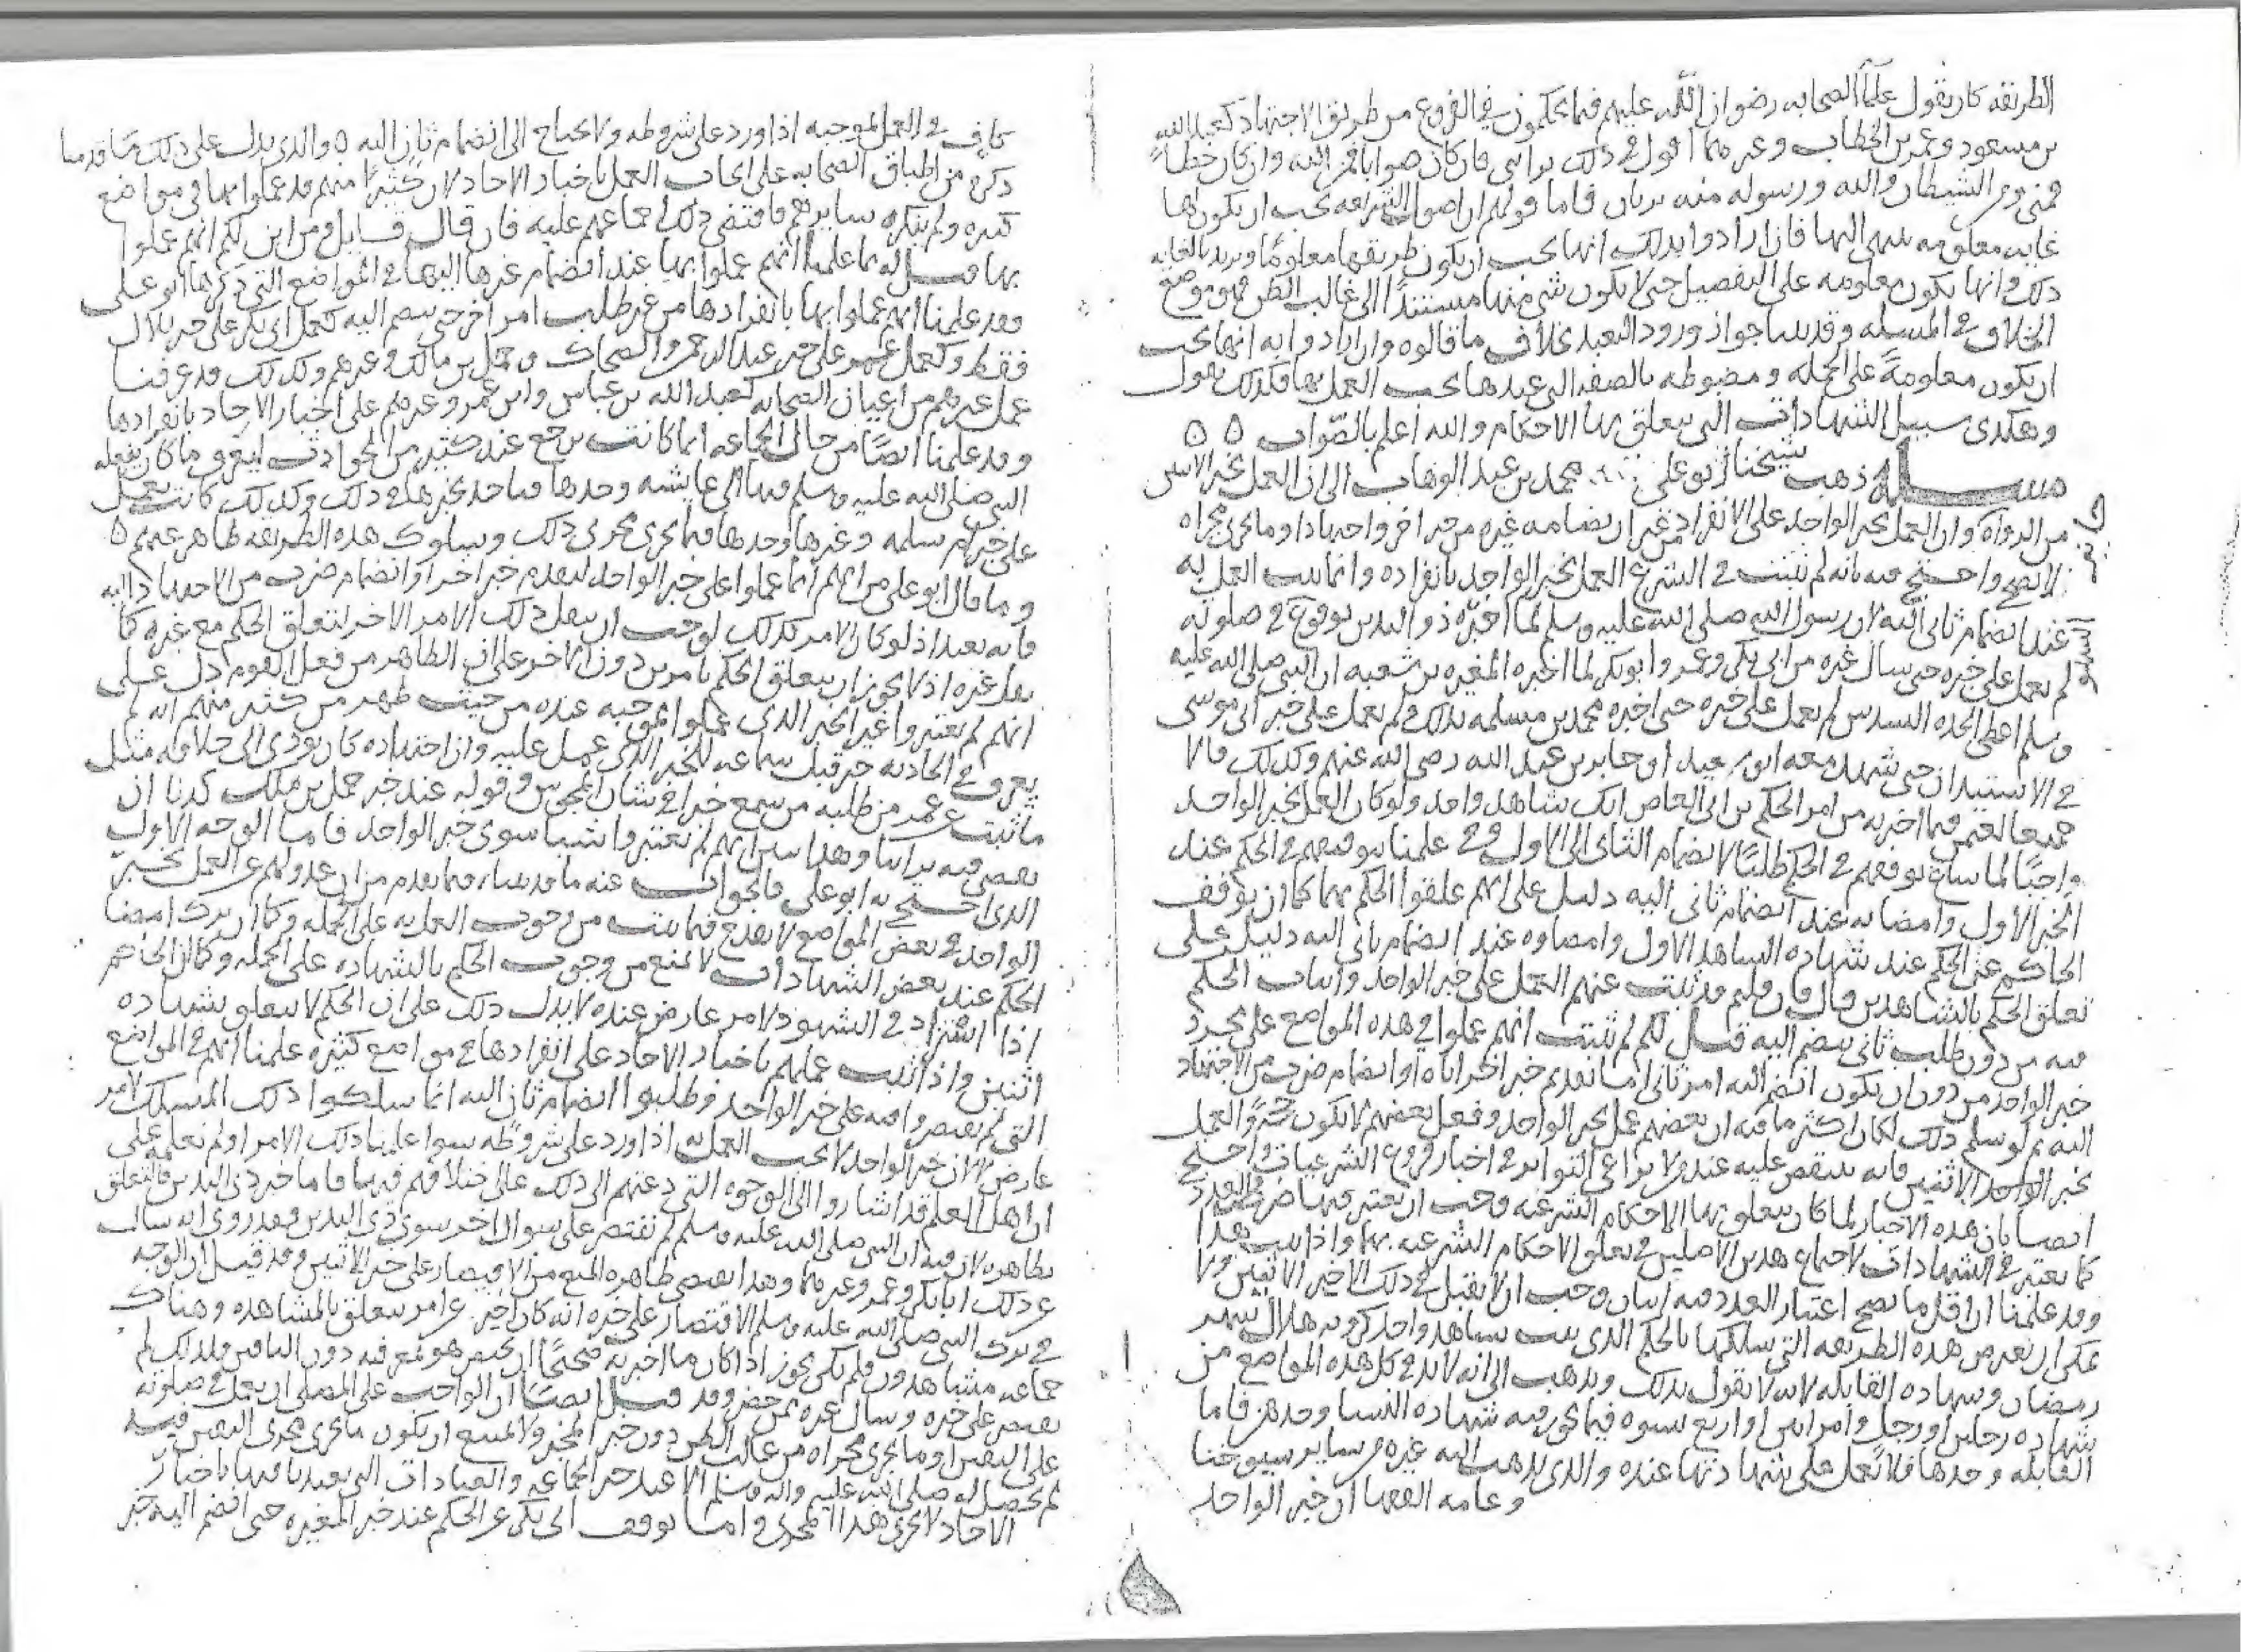 الطريقه كان يقول علمآ الصحابه رضوان الله عليهم فيما يحكمون في الفروع من طريق الاجتهاد كعبد الله
بن مسعود وعمر بن الخطاب وغيرهما اقول في ذلك برايي فان كان صوابا فمن الله وان كان خطاً
فمني ومن الشيطان والله ورسوله منه بريان فاما قولهم ان اصول الشريعه يجب ان يكون لها
غايه معلومه ينتهى اليها فان ارادوا بذلك انها يجب ان يكون طريقها معلومًا ويريد بالغايه
ذلك وانها يكون معلومه على التفصيل حتى لا يكون شي منها مستندًا الى غالب الظن فهو موضع
الخلاف في المسله وقد بينا جواز ورود التعبد بخلاف ما قالوه وان ارادوا به انها يجب
ان يكون معلومةً على الجمله ومضبوطه بالصفه التي عندها يجب العمل بها فكذلك نقول
وهكذى سبيل الشهادات التي يتعلق بها الاحكام والله اعلم بالصواب ٥ ٥
مسله ذهب شيخنا ابو علي محمد بن عبد الوهاب الى ان العمل بخبر الاثنين
من الرواه وان العمل بخبر الواحد على الانفراد من غير ان يضامه غيره من خبر اخر واجتهاد او ما يجرى مجراه
لا يصح واحتج فيه بانه لم يثبت في الشرع العمل بخبر الواحد بانفراده وانما يثبت العمل به
عند انضمام ثاني اليه لان رسول الله صلى الله عليه وسلم لما اخبره ذو اليدين بوقوع في صلوته
لم يعمل على خبره حتى سال غيره من ابي بكر وعمر وابو بكر لما اخبره المغيره بن شعبه ان النبي صلى الله عليه
وسلم اعطى الجده السدس لم يعمل على خبره حتى اخبره محمد بن مسلمه بذلك ولم يعمل على خبر ابي موسى
في الاستيذان حتى شهد معه ابو سعيد او جابر بن عبد الله رضي الله عنهم وكذلك قالا
جميعا لعثمن فيما اخبر به من امر الحكم بن ابي العاص انك شاهد واحد ولو كان العمل بخبر الواحد
واجبًا لما ساغ توقفهم في الحكم طلبًا لانضمام الثاني الى الاول وفي علمنا بتوقفهم في الحكم عند
الخبر الاول وامضايه عند انضمام ثاني اليه دليل على انهم علقوا الحكم بهما كما ان توقف
الحاكم عن الحكم عند شهاده الشاهد الاول وامضاوه عند انضمام ثاني اليه دليل على
تعلق الحكم بالشاهدين قال فان قلتم قد ثبت عنهم العمل على خبر الواحد واثبات الحكم
فيه من دون طلب ثاني ينضم اليه قيل لكم لم يثبت انهم عملوا في هذه المواضع على مجرد
خبر الواحد من دون ان يكون انضم اليه امر ثاني اما تقدم خبر اخر اياه او انضمام ضرب من الاجتهاد
اليه ثم لو سلم ذلك لكان اكثر ما فيه ان بعضهم عمل بخبر الواحد وفعل بعضهم لا يكون حجةً والعمل
بخبر الاثنين فانه ينتقض عليه عنده ولا يراعي التواتر في اخبار فروع الشرعيات واحتج
ايضا بان هذه الاخبار لما كان يتعلق بها الاحكام الشرعيه وجب ان يعتبر فيها ضرب من العدد
كما يعتبر في الشهادات لاجتماع هذين الاصلين في تعلق الاحكام الشرعيه بهما واذا ثبت هذا
وقد علمنا ان اقل ما يصح اعتبار العدد فيه اثنان وجب ان لا يقبل في ذلك الا خبر الاثنين ولا
يمكن ان يعترض هذه الطريقه التي سلكها بالحكم الذي يثبت بشاهد واحد كرويه هلال شهر
رمضان وشهاده القابله لانه لا يقول بذلك ويذهب الى انه لا بد في كل هذه المواضع من
شهاده رجلين او رجل وامراتين او اربع نسوه فيما يجوز فيه شهاده النسا وحدهن فاما
القابله وحدها فلا يعمل على شهادتها عنده والذي يذهب اليه غيره من ساير شيوخنا
وعامه الفقها ان خبر الواحد
كاف في العمل بموجبه اذا ورد على شروطه ولا يحتاج الى انضمام ثان اليه ٥ والذي يدل على ذلك ما قدمنا
ذكره من اطباق الصحابه على ايجاب العمل باخبار الاحاد لان كثيرًا منهم قد عملوا بها في مواضع
كثيره ولم ينكره سايرهم فاقتضى ذلك اجماعهم عليه فان قال قايل ومن اين لكم انهم عملوا
بها قيل له بما علمنا انهم عملوا بها عند انضمام غيرها اليها في المواضع التي ذكرها ابو على
وقد علمنا انهم عملوا بها بانفرادها من غير طلب امر اخر حتى ينضم اليه كعمل ابي بكر على خبر بلال
فقط وكعمل عمر على خبر عبد الرحمن والضحاك و حمل بن مالك وغيرهم وكذلك قد عرفنا
عمل غيرهم من اعيان الصحابه كعبد الله بن عباس وابن عمر وغيرهم على اخبار الاحاد بانفرادها
وقد علمنا ايضًا من حال الجماعه انها كانت ترجع عند كثير من الحوادث ليعرف ما كان يفعله
النبي صلى الله عليه وسلم فيها الى عايشه وحدها فياخذ بخبرها في ذلك وكذلك كانت تعمل
على خبر ام سلمه وغيرها وحدها فيما يجرى مجرى ذلك وسلوك هذه الطريقه ظاهر عنهم ٥
وما قال ابو على من انهم انما عملوا على خبر الواحد لتقدم خبر اخر او انضمام ضرب من الاجتهاد اليه
فانه بعيد اذ لو كان الامر كذلك لوجب ان ينقل ذلك الامر الاخر لتعلق الحكم مع غيره كما
نقل غيره اذ لا يجوز ان يتعلق الحكم بامرين دون الاخر على ان الظاهر من فعل القوم دل على
انهم لم يعتبروا غير الخبر الذى عملوا بموجبه عنده من حيث ظهر من كثير منهم انه لم
يعرف في الحادثه خبر قبل سماعه للخبر الذي عمل عليه وان اجتهاده كان يودى الى خلافه مثل
ما ثبت عن عمر من طلبه من سمع خبرا في شان المجوس وقوله عند خبر حمل بن ملك كدنا ان
نقضى فيه براينا وهذا يبين انهم لم يعتبروا شيا سوى خبر الواحد فاما الوجه الاول
الذى احتج به ابو على فالجواب عنه ما قدمناه فيما تقدم من ان عدولهم عن العمل بخبر
الواحد في بعض المواضع لا يقدح فيما ثبت من وجوب العمل به على الجمله وكما ان ترك امضا
الحكم عند بعض الشهادات لا يمنع من وجوب الحكم بالشهاده على الجمله وكما ان الحاكم
اذا استزاد في الشهود لامر عارض عنده لا يدل ذلك على ان الحكم لا يتعلق بشهاده
اثنين واذا ثبت عملهم باخبار الاحاد على انفرادها في مواضع كثيره علمنا انهم في المواضع
التي لم يقتصروا فيه على خبر الواحد وطلبوا انضمام ثان اليه انما سلكوا ذلك المسلك لامر
عارض لا ان خبر الواحد لا يجب العمل به اذا ورد على شروطه سوا علمنا ذلك الامر او لم نعلمه على
ان اهل العلم قد اشاروا الى الوجوه التي دعتهم الى ذلك على اختلافهم فيها فاما خبر ذى اليدين فالتعلق
بظاهره لان فيه ان النبي صلى الله عليه وسلم لم يقتصر على سوال اخر سوى ذى اليدين وقد روى انه سال
عن ذلك ابا بكر وعمر وغيرهما وهذا يقتضى ظاهره المنع من الاقتصار على خبر الاثنين وقد قيل ان الوجه
في ترك النبي صلى الله عليه وسلم الاقتصار على خبره انه كان اخبر عن امر يتعلق بالمشاهده وهناك
جماعه مشاهدون فلم يكن يجوز اذا كان ما اخبر به صحيحًا ان يختص هو بمعرفته دون الباقين ولذلك لم
يقتصر على خبره وسال غيره ممن حضر وقد قيل ايضًا ان الواجب على المصلى ان يعمل في صلوته
على اليقين او ما يجرى مجراه من غالب الظن دون خبر المخبر ولا يمتنع ان يكون ما يجرى مجرى اليقين فيه
لم يحصل له صلى الله عليه واله وسلم الا عند خبر الجماعه والعبادات التي تعبدنا فيها باخبار
الاحاد لا يجرى هذا المجرى واما توقف ابي بكر عن الحكم عند خبر المغيره حتى انضم اليه خبر